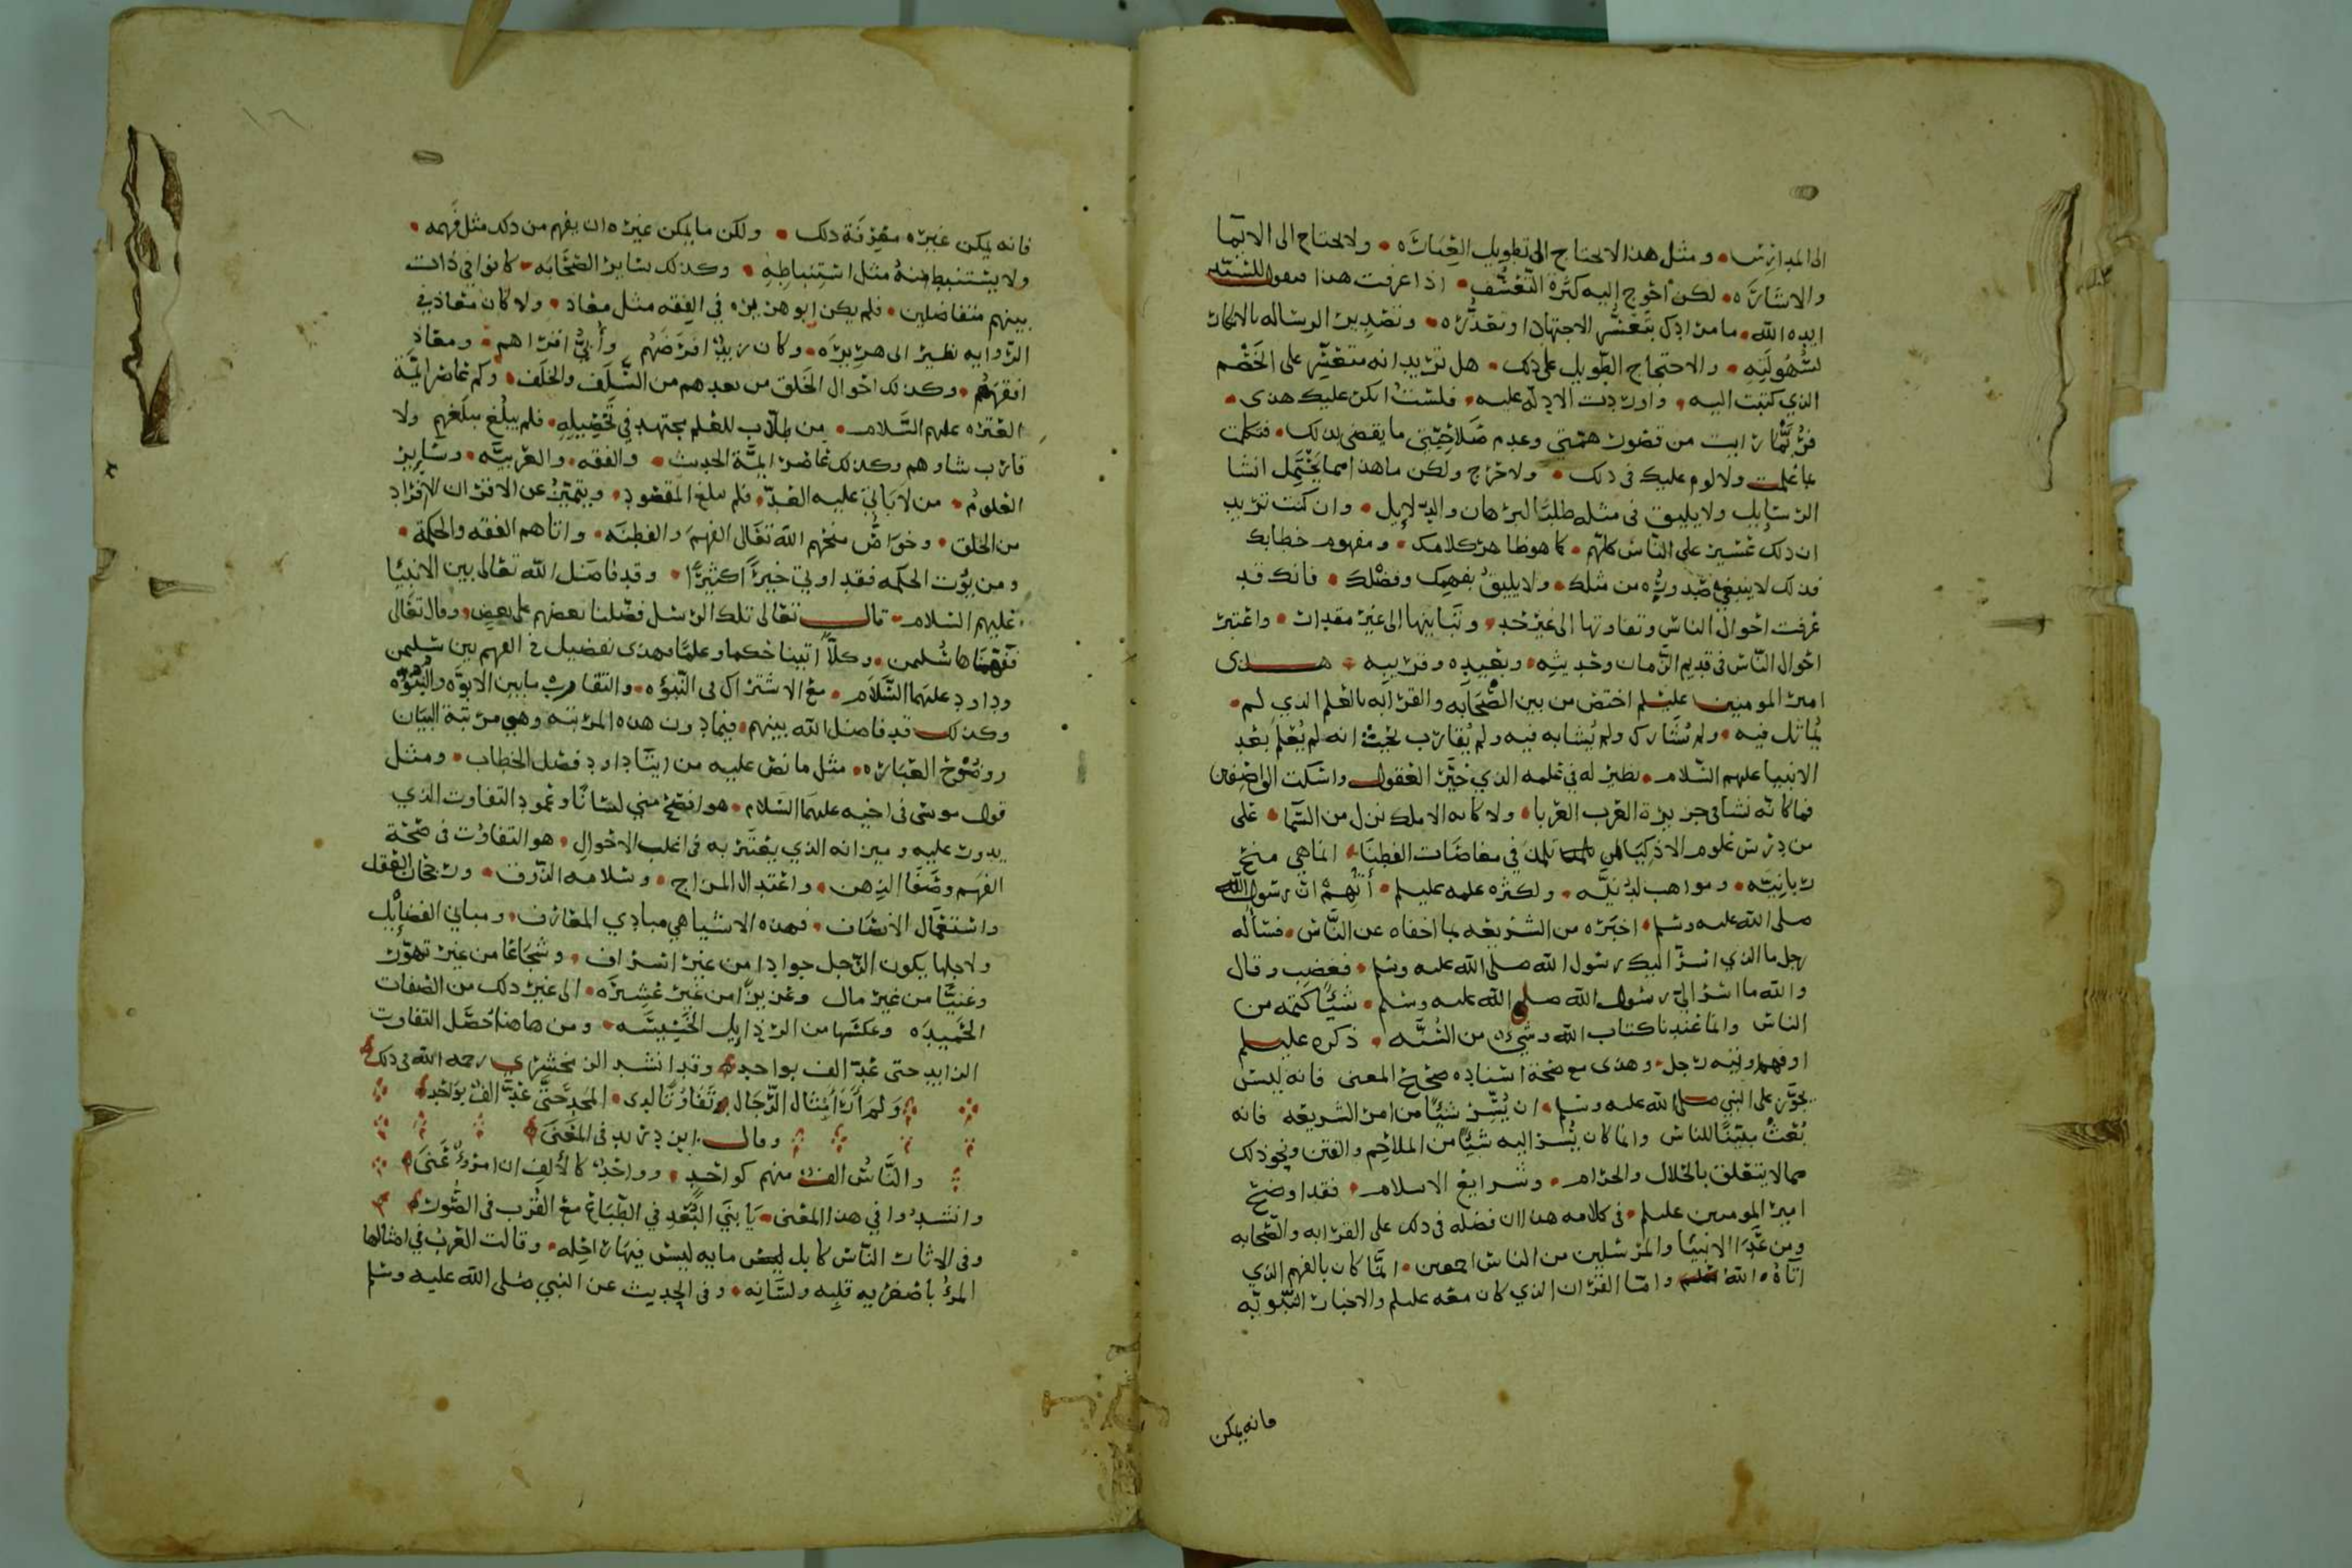 الى المدارس • ومثل هذا لا يحتاج الى تطويل العبارة • ولا يحتاج الى الايما
والاشارة • لكن احوج اليه كثرة التعسف • اذا عرفت هذا فقول للسيد
ايده الله • ما مرادك بتعسر الاجتهاد او تعذره • وتصدير الرساله بالانكار
لسهولته • والاحتجاج الطويل على ذلك • هل تريد انه متعسر على الخصم
الذي كتبت اليه • واوردت الادلة عليه • فلست انكر عليك هذى •
فربما رايت من قصور همتي وعدم صلاحيتي ما يقضى بذلك • فتكلمت
بما علمت ولا لوم عليك في ذلك • ولا حرج ولكن ما هذا مما يحتمل انشا
الرسايل ولا يليق في مثله طلب البرهان والدلايل • وان كنت تريد
ان ذلك عسير على الناس كلهم • كما هو ظاهر كلامك • ومفهوم خطابك
فذلك لا ينبغي صدوره من مثلك • ولا يليق بفهمك وفضلك • فانك قد
عرفت احوال الناس وتفاوتها الى غير حد • وتباينها الى غير مقدار • واعتبر
احوال الناس في قديم الزمان وحديثه • وبعيده وقريبه • هذى
امير المومنين عليلم اختص من بين الصحابه والقرابه بالعلم الذي لم •
يماثل فيه • ولم يشارك ولم يشابه فيه ولم يقارب بحيث انه لم يعلم بعد
الانبيا عليهم السلام • نظير له في علمه الذي حير العقول واسكت الواصفين
فما كانه نشا في جزيرة العرب العربا • ولا كانه الا ملك نزل من السما • على
من درس علوم الاذكيا تلمذ في مغاصات الفطنا • انما هي منح
ربانيه • ومواهب لدنيه • ولكثره علمه عليلم • اتهم ان رسول الله
صلى الله عليه وسلم • اخبره من الشريعه بما اخفاه عن الناس • فساله
رجل ما الذي اسر اليك رسول الله صلى الله عليه وسلم • فغضب وقال
والله ما اسر الي رسول الله صلى الله عليه وسلم • شيا كتمه من
الناس وانما عندنا كتاب الله وشيء من السنه • ذكره عليلم
او فهم اوتيه رجل • وهذى مع صحة اسناده صحيح المعنى فانه ليس
يجوز على النبي صلى الله عليه وسلم • ان يسر شيا من امر الشريعه فانه
بعث مبينا للناس وانما كان يسر اليه شيا من الملاحم والفتن ونحو ذلك
مما لا يتعلق بالحلال والحرام • وشرايع الاسلام • فقد اوضح
امير المومنين عليلم • في كلامه هذا ان فضله في ذلك على القرابه والصحابه
ومن عدا الانبيا والمرسلين من الناس اجمعين • انما كان بالفهم الذي
اتاه الله واما القران الذي كان معه عليلم والاخبار النبويه
فانه يمكن
١٦
فانه يمكن غيره معرفة ذلك • ولكن ما يمكن غيره ان يفهم من ذلك مثل فهمه •
ولا يستنبط منه مثل استنباطه • وكذلك ساير الصحابه • كانوا في ذات
بينهم متفاضلين • فلم يكن ابو هريره في الفقه مثل معاذ • ولا كان معاذ في
الروايه نظير ابي هريره • وكان زيد افرضهم وأبي اقراهم • ومعاذ
افقههم • وكذلك احوال الخلق من بعدهم من السلف والخلف • وكم عاصر ايمة
العتره عليهم السلام • من طلاب للعلم مجتهد في تحصيله • فلم يبلغ مبلغهم ولا
قارب شاوهم وكذلك عاصر ايمة الحديث • والفقه • والعربيه • وساير
العلوم • من لا ياتي عليه العد • فلم يبلغ المقصود • ويتميز عن الاقران الا افراد
من الخلق • وخواص منحهم الله تعالى الفهم والفطنه • واتاهم الفقه والحكمة •
ومن يؤت الحكمه فقد اوتي خيرا كثيرا • وقد فاضل الله تعالى بين الانبيا
عليهم السلام • قال تعالى تلك الرسل فضلنا بعضهم على بعض • وقال تعالى
ففهمناها سليمن • وكلا اتينا حكما وعلما وهذى تفضيل في الفهم بين سليمن
وداود عليهما السلام • مع الاشتراك في النبوه • والتقارب ما بين الابوه والبنوه
وكذلك قد فاضل الله بينهم • فيما دون هذه المرتبه وهي مرتبة البيان
ووضوح العباره • مثل ما نص عليه من ايتا داود فصل الخطاب • ومثل
قول موسى في اخيه عليهما السلام • هو افصح مني لسانا وعمود التفاوت الذي
يدور عليه وميزانه الذي يعتبر به في اغلب الاحوال • هو التفاوت في صحة
الفهم وصفا الذهن • واعتدال المزاج • وسلامه الذوق • ورجحان العقل
واستعمال الانصاف • فهذه الاشيا هي مبادي المعارف • ومباني الفضايل
ولاجلها يكون الرجل جوادا من غير اسراف • وشجاعا من غير تهور
وغنيا من غير مال وعزيزا من غير عشيره • الى غير ذلك من الصفات
الحميده وعكسها من الرذايل الخسيسه • ومن هاهنا حصل التفاوت
الزايد حتى عد الف بواحد • وقد انشد الزمخشري رحمه الله في ذلك
ولم أر أمثال الرجال تفاوتا لدى • المجد حتى عد الف بواحد •
وقال ابن دريد في المعنى
والناس الف منهم كواحد • وواحد كالألف ان امرؤ عنى •
وانشدوا في هذا المعنى • يا بني البعد في الطباع مع القرب في الصور •
وفي الاثار الناس كابل مايه ليس فيها راحله • وقالت العرب في امثالها
المرء بأصغريه قلبه ولسانه • وفي الحديث عن النبي صلى الله عليه وسلم